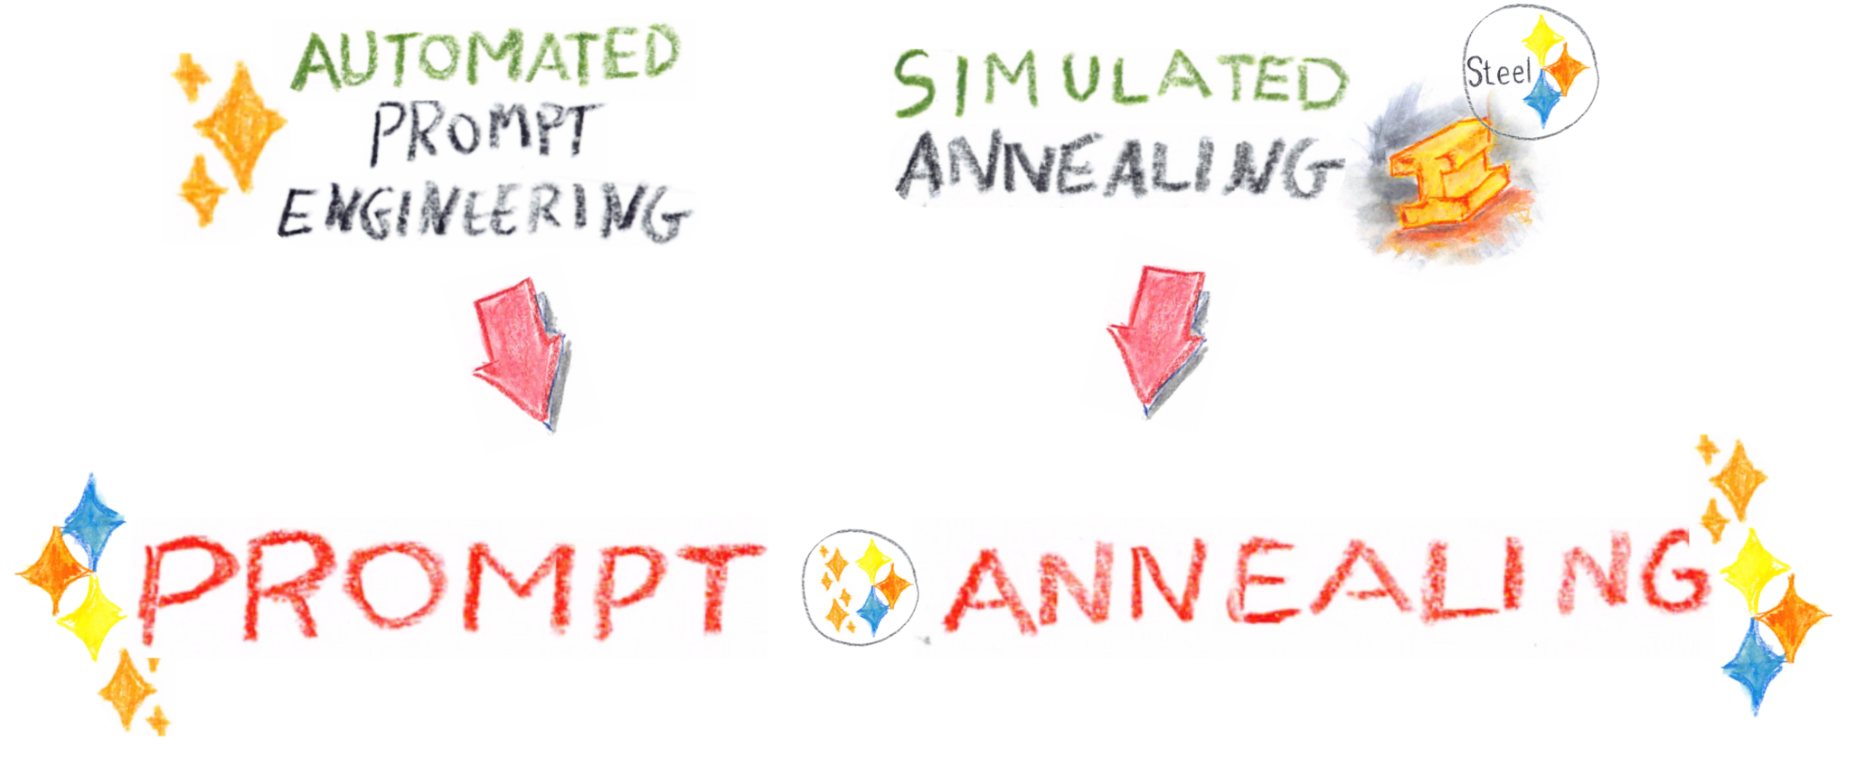 AUTOMATED
PROMPT
ENGINEERING
SIMULATED
ANNEALING
Steel
PROMPT ANNEALING